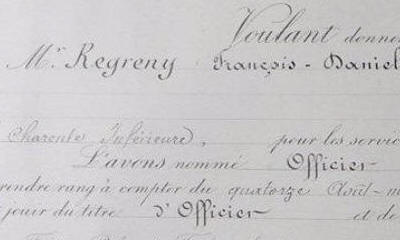 Voulant donner
Mr. Regreny François - Daniel
Charente Inférieure, pour les servic
L'avons nommé Officier
rendre rang à compter du quatorze Août-m
jouir du titre d'Officier et de